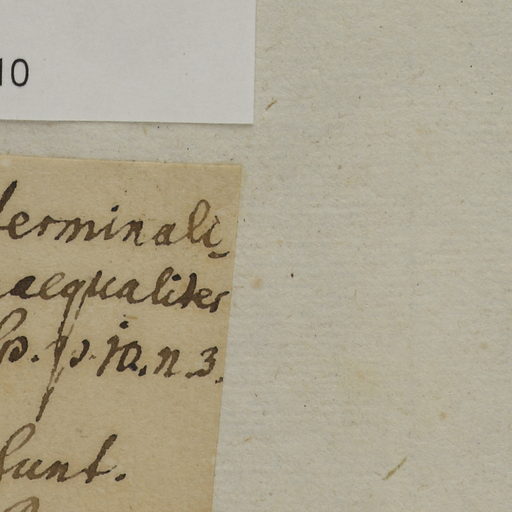 10
terminali_
aequaliter
Sp. p. 10. n. 3.
sunt.